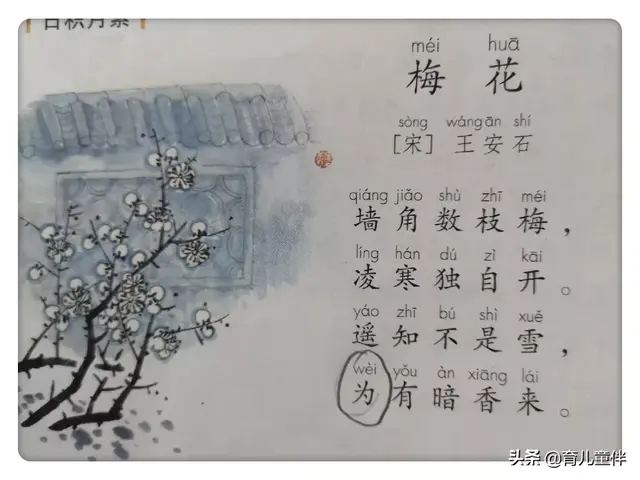 日积月累
méi huā
梅 花
sòng wáng ān shí
[宋] 王安石
qiáng jiǎo shù zhī méi
墙角数枝梅，
líng hán dú zì kāi
凌寒独自开。
yáo zhī bú shì xuě
遥知不是雪，
wèi yǒu àn xiāng lái
为有暗香来。
头条 @育儿童伴